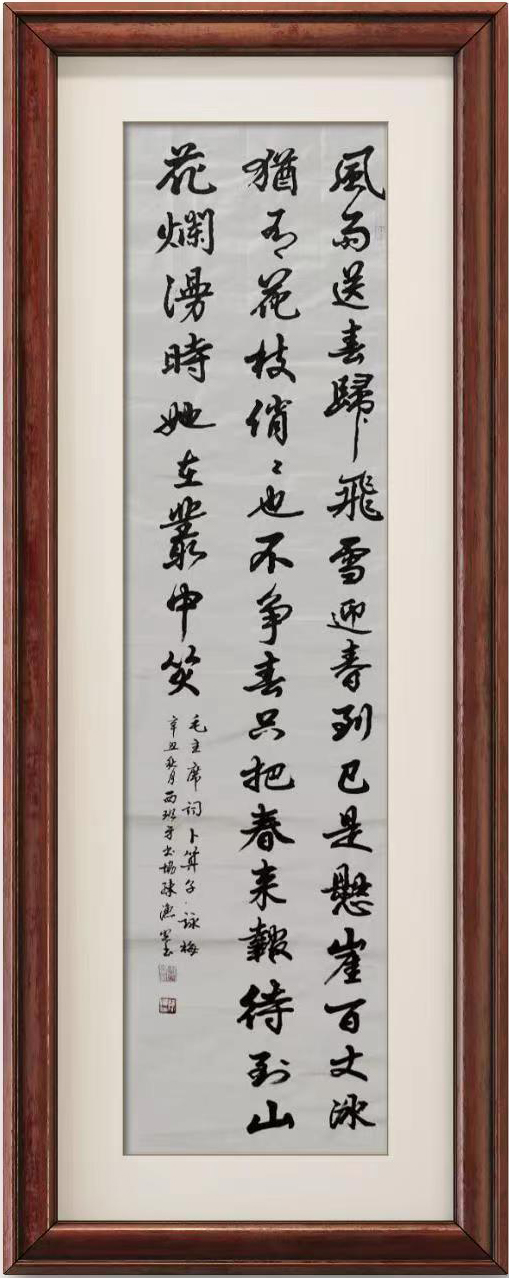 風雨送春歸飛雪迎春到已是懸崖百丈冰
猶有花枝俏〻也不爭春只把春來報待到山
花爛漫時她在叢中笑
毛主席詞卜算子·詠梅
辛丑秋月西班牙